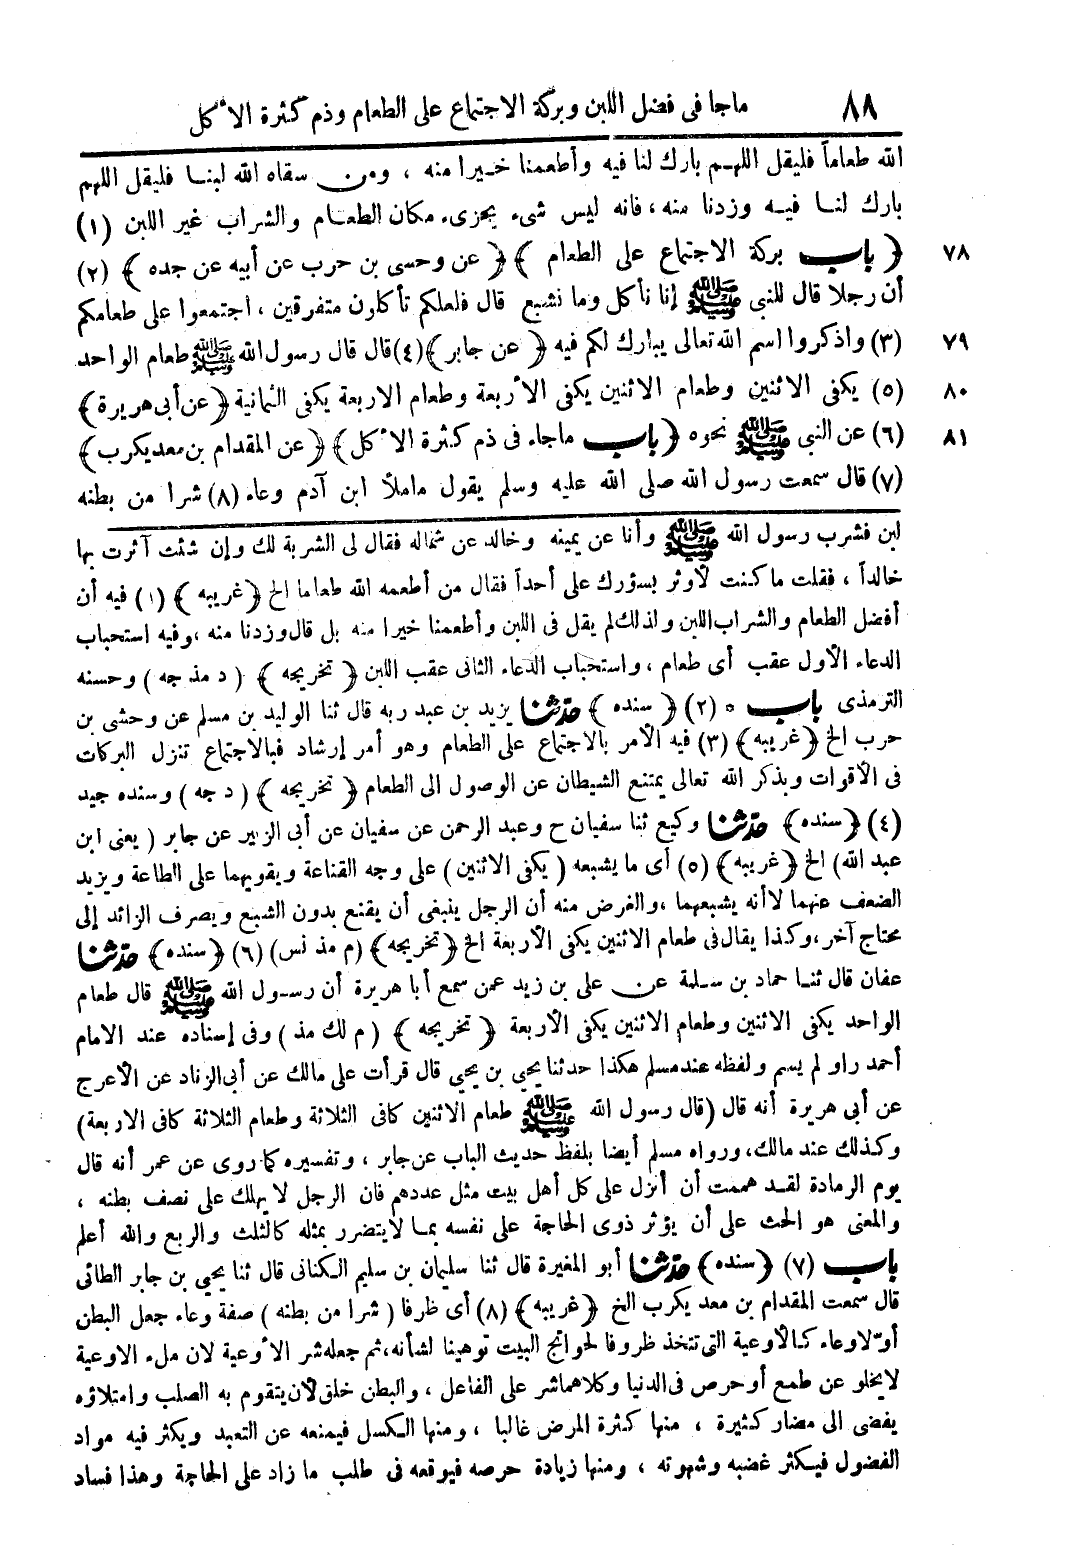 ٨٨ ماجا فى فضل اللبن وبركة الاجتماع على الطعام وذم كثرة الأكل
الله طعاماً فليقل اللهم بارك لنا فيه وأطعمنا خيرا منه ، ومن سقاه الله لبنا فليقل اللهم
بارك لنا فيه وزدنا منه ، فانه ليس شىء يجزىء مكان الطعام والشراب غير اللبن (١)
٧٨ ﴿ باب بركة الاجتماع على الطعام ﴾ ﴿ عن وحسى بن حرب عن أبيه عن جده ﴾ (٢)
أن رجلا قال للنبى ﷺ إنا نأكل وما نشبع قال فلعلكم تأكلون متفرقين ، اجتمعوا على طعامكم
٧٩ (٣) واذكروا اسم الله تعالى يبارك لكم فيه ﴿ عن جابر ﴾ (٤) قال قال رسول الله ﷺ طعام الواحد
٨٠ (٥) يكفى الاثنين وطعام الاثنين يكفى الأربعة وطعام الاربعة يكفى الثمانية ﴿ عن أبى هريرة ﴾
٨١ (٦) عن النبى ﷺ نحوه ﴿ باب ماجاء فى ذم كثرة الأكل ﴾ ﴿ عن المقدام بن معد يكرب ﴾
(٧) قال سمعت رسول الله صلى الله عليه وسلم يقول ماملأ ابن آدم وعاء (٨) شرا من بطنه
لبن فشرب رسول الله ﷺ وأنا عن يمينه وخالد عن شماله فقال لى الشربة لك وإن شئت آثرت بها
خالداً ، فقلت ما كنت لأوثر بسؤرك على أحداً فقال من أطعمه الله طعاما الخ ﴿ غريبه ﴾ (١) فيه أن
أفضل الطعام والشراب اللبن ولذلك لم يقل فى اللبن وأطعمنا خيرا منه بل قال وزدنا منه ، وفيه استحباب
الدعاء الأول عقب أى طعام ، واستحباب الدعاء الثانى عقب اللبن ﴿ تخريجه ﴾ ( د مذ جه ) وحسنه
الترمذى باب * (٢) ﴿ سنده ﴾ حدثنا يزيد بن عبد ربه قال ثنا الوليد بن مسلم عن وحشى بن
حرب الخ ﴿ غريبه ﴾ (٣) فيه الأمر بالاجتماع على الطعام وهو أمر إرشاد فبالاجتماع تنزل البركات
فى الأقوات وبذكر الله تعالى يمتنع الشيطان عن الوصول الى الطعام ﴿ تخريجه ﴾ ( د جه ) وسنده جيد
(٤) ﴿ سنده ﴾ حدثنا وكيع ثنا سفيان ح وعبد الرحمن عن سفيان عن أبى الزبير عن جابر ( يعنى ابن
عبد الله ) الخ ﴿ غريبه ﴾ (٥) أى ما يشبعه ( يكفى الاثنين ) على وجه القناعة ويقويهما على الطاعة ويزيد
الضعف عنهما لا أنه يشبعهما ، والغرض منه أن الرجل ينبغى أن يقنع بدون الشبع ويصرف الزائد إلى
محتاج آخر ، وكذا يقال فى طعام الاثنين يكفى الأربعة الخ ﴿ تخريجه ﴾ (م مذ نس) (٦) ﴿ سنده ﴾ حدثنا
عفان قال ثنا حماد بن سلمة عن على بن زيد عمن سمع أبا هريرة أن رسول الله ﷺ قال طعام
الواحد يكفى الاثنين وطعام الاثنين يكفى الأربعة ﴿ تخريجه ﴾ ( م لك مذ ) وفى إسناده عند الامام
أحمد راو لم يسم ولفظه عند مسلم هكذا حدثنا يحيى بن يحيى قال قرأت على مالك عن أبى الزناد عن الأعرج
عن أبى هريرة أنه قال (قال رسول الله ﷺ طعام الاثنين كافى الثلاثة وطعام الثلاثة كافى الاربعة)
وكذلك عند مالك، ورواه مسلم أيضا بلفظ حديث الباب عن جابر ، وتفسيره كما روى عن عمر أنه قال
يوم الرمادة لقد هممت أن أنزل على كل أهل بيت مثل عددهم فان الرجل لا يهلك على نصف بطنه ،
والمعنى هو الحث على أن يؤثر ذوى الحاجة على نفسه بما لا يتضرر بمثله كالثلث والربع والله أعلم
باب (٧) ﴿ سنده ﴾ حدثنا أبو المغيرة قال ثنا سليمان بن سليم الكنانى قال ثنا يحيى بن جابر الطائى
قال سمعت المقدام بن معد يكرب الخ ﴿ غريبه ﴾ (٨) أى ظرفا ( شرا من بطنه ) صفة وعاء جعل البطن
أولا وعاء كالأوعية التى تتخذ ظروفا لحوائج البيت توهينا لشأنه، ثم جعله شر الأوعية لان ملء الاوعية
لايخلو عن طمع أو حرص فى الدنيا وكلاهما شر على الفاعل ، والبطن خلق لأن يتقوم به الصلب وامتلاؤه
يفضى الى مضار كثيرة ، منها كثرة المرض غالبا ، ومنها الكسل فيمنعه عن التعبد ويكثر فيه مواد
الفضول فيكثر غضبه وشهوته ، ومنها زيادة حرصه فيوقعه فى طلب ما زاد على الحاجة وهذا فساد